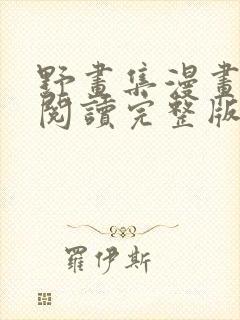 野畫集漫畫
閱讀完整版
羅伊斯